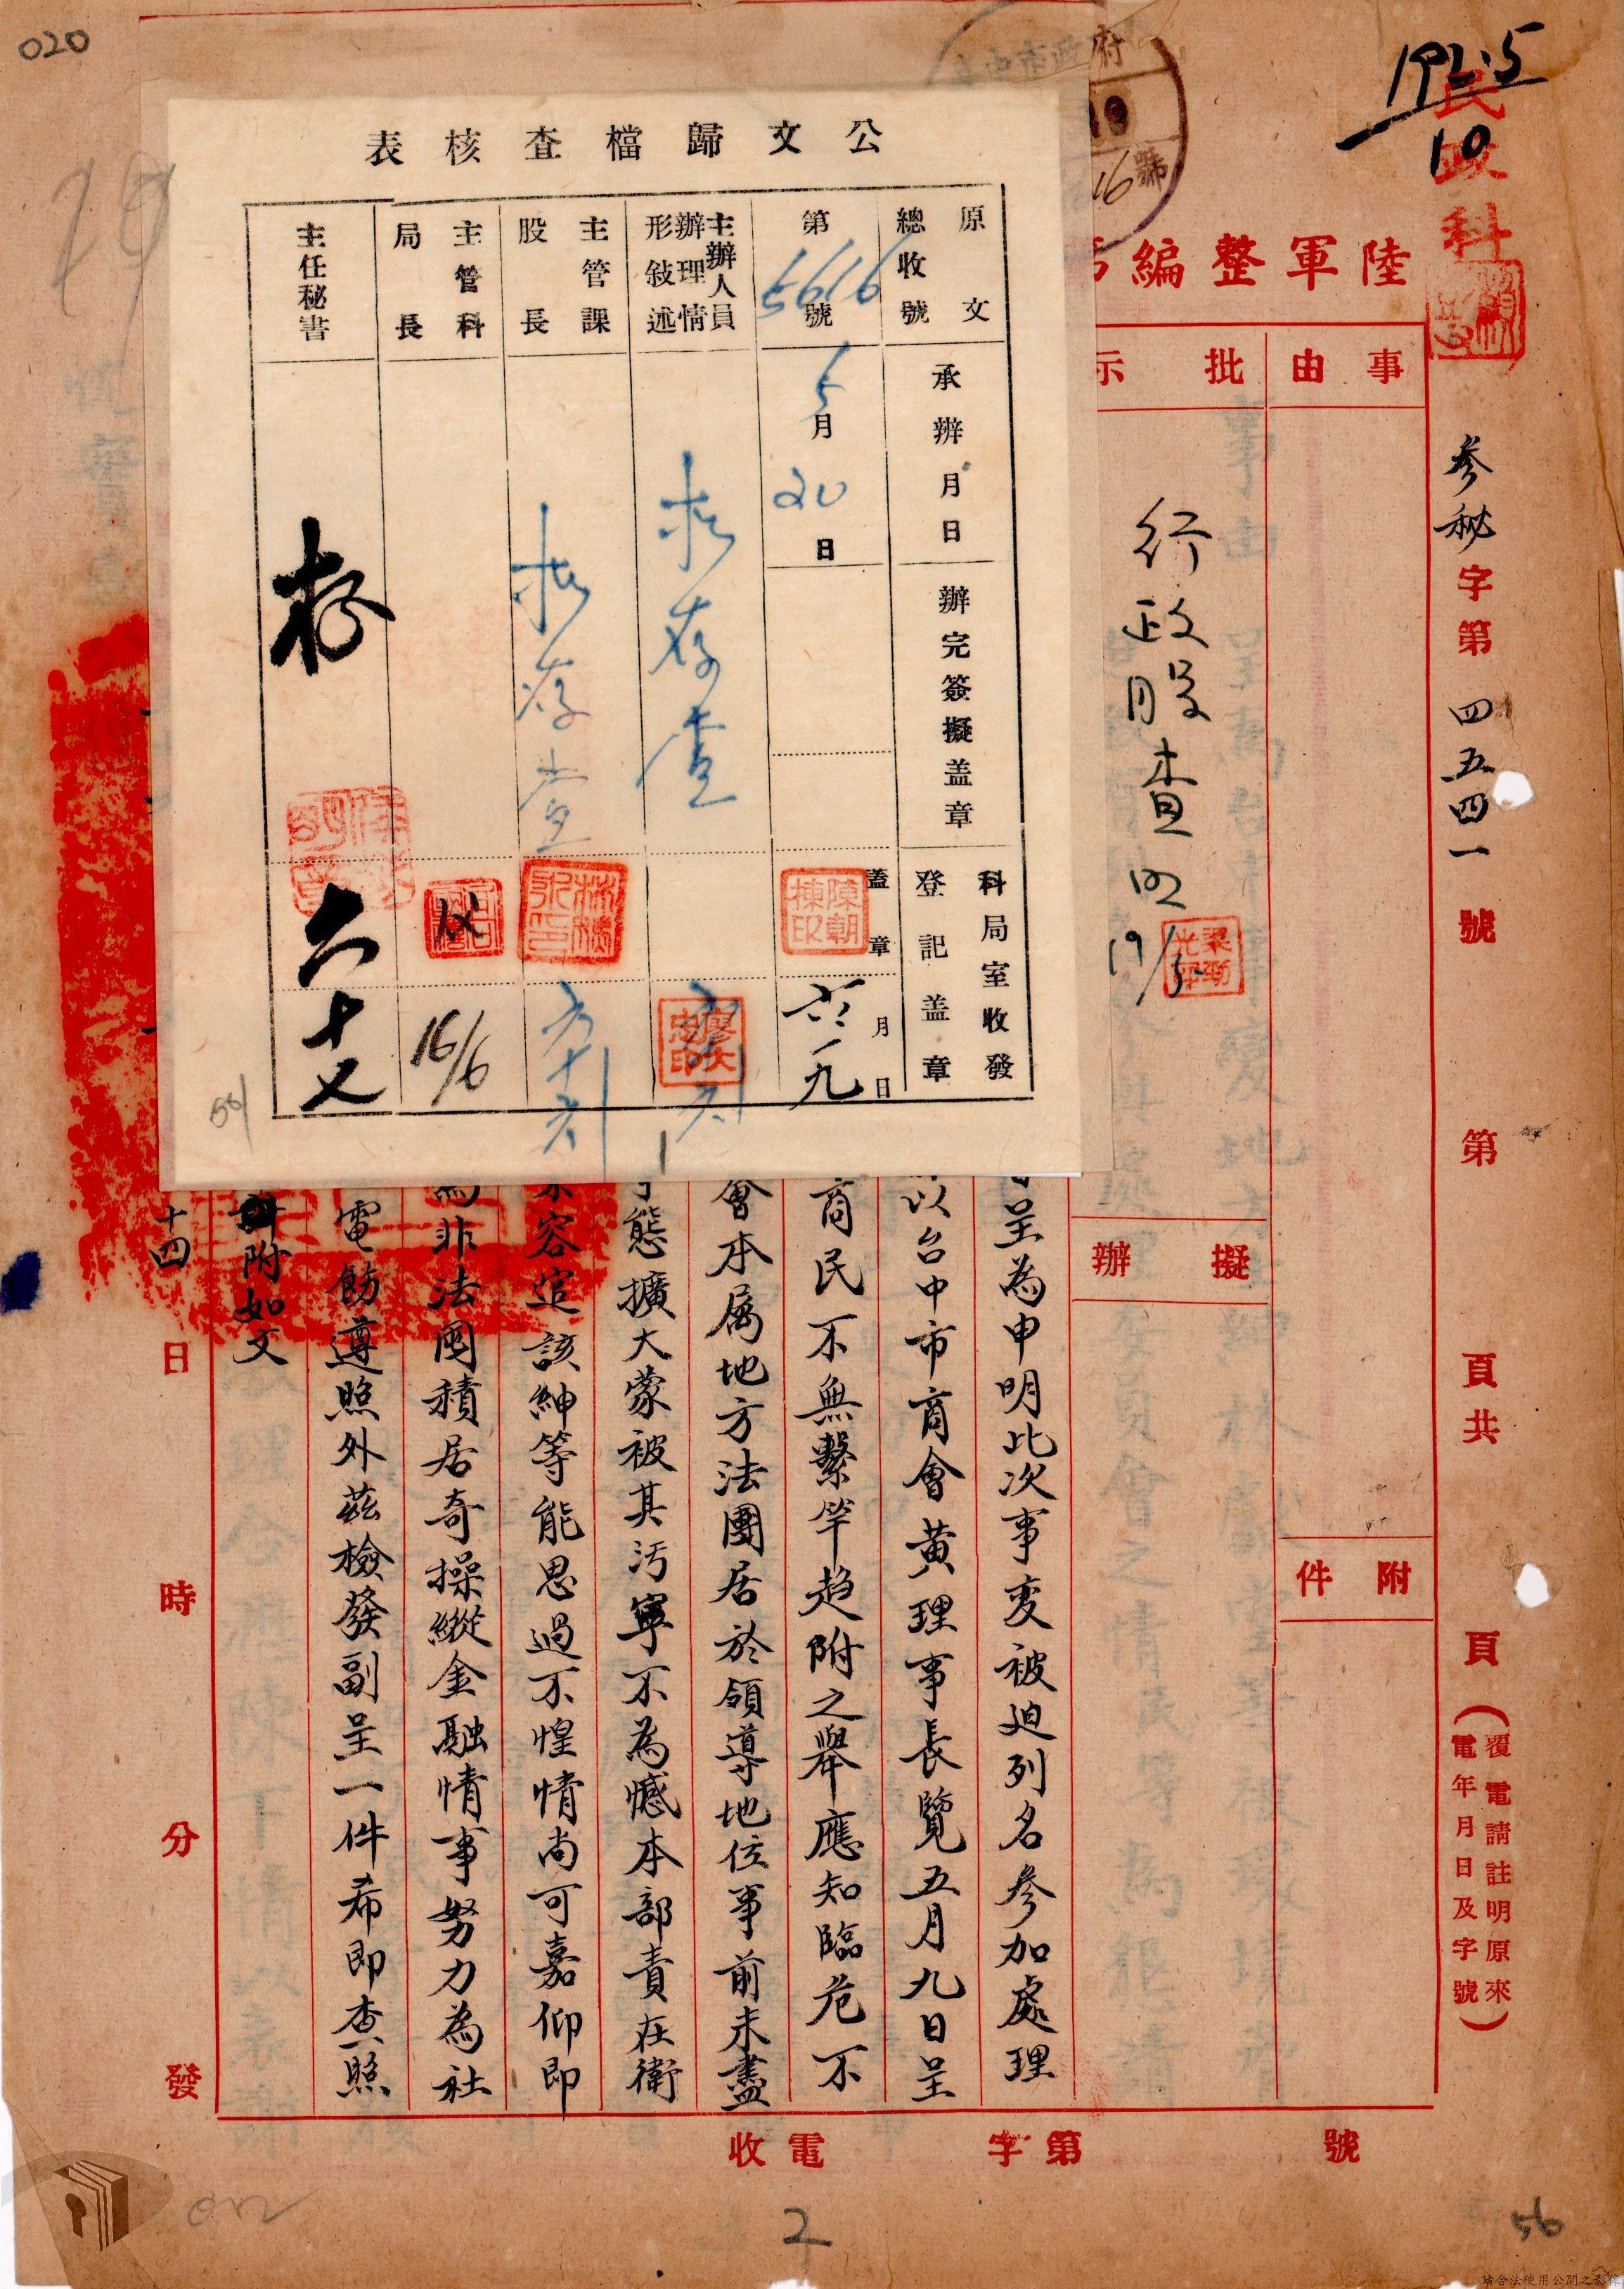 020
192.5
10
民政科
參秘字第四五四一號 第 頁共 頁
(覆電請註明原來
電年月日及字號)
陸軍整編
事由
附件
批示
行政股查明
19/5
擬辦
呈為申明此次事变被迫列名參加處理
以台中市商會黃理事長覽五月九日呈
商民不無繫竿趋附之舉應知臨危不
會本属地方法團居於領導地位事前未盡
態擴大蒙被其污寧不為憾本部責在衛
容逭該紳等能思過不惶情尚可嘉仰即
為非法囤積居奇操縱金融情事努力為社
電飭遵照外茲檢發副呈一件希即查照
附如文
十四日 時 分 發
收電 字第 號
公文歸檔查核表
原文總收號
第5616號
承辦月日
5月20日
辦完簽擬盖章
科局室收發登記盖章
盖章
陳朝棟印
月日
六九
主辦人員辦理情形敍述
擬存查
主管課股長
擬存查
六十六
主管科局長
16/6
主任秘書
存
六十七
56
2
請合法使用公開之影像